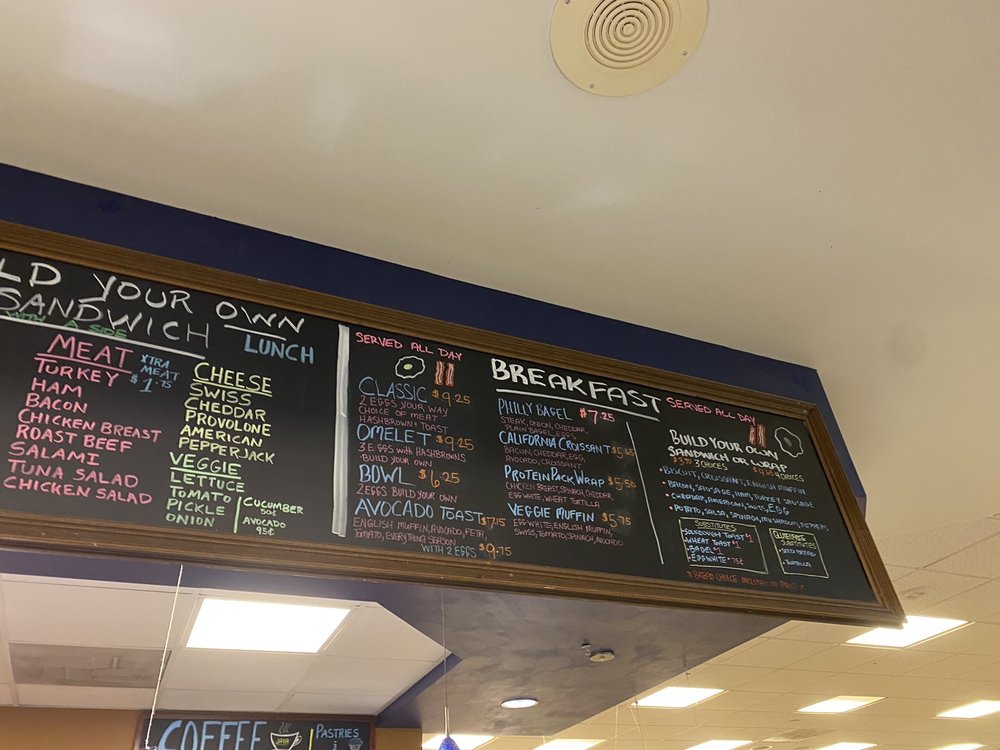 LD YOUR OWN
SANDWICH
LUNCH
WITH A SIDE
MEAT
XTRA
MEAT
$1.75
TURKEY
HAM
BACON
CHICKEN BREAST
ROAST BEEF
SALAMI
TUNA SALAD
CHICKEN SALAD
CHEESE
SWISS
CHEDDAR
PROVOLONE
AMERICAN
PEPPERJACK
VEGGIE
LETTUCE
TOMATO
PICKLE
ONION
CUCUMBER
50¢
AVOCADO
95¢
SERVED ALL DAY
BREAKFAST
SERVED ALL DAY
CLASSIC $9.25
2 EGGS YOUR WAY
CHOICE OF MEAT
HASHBROWN + TOAST
OMELET $9.25
3 EGGS WITH HASHBROWNS
BUILD YOUR OWN
BOWL $6.25
2 EGGS BUILD YOUR OWN
AVOCADO TOAST $7.15
ENGLISH MUFFIN, AVOCADO, FETA,
TOMATO, EVERYTHING SEASON
WITH 2 EGGS $9.75
PHILLY BAGEL $7.25
STEAK, ONION, CHEDDAR,
PLAIN BAGEL, EGGS
CALIFORNIA CROISSANT
BACON, CHEDDAR, EGG,
AVOCADO, CROISSANT
PROTEIN PACK WRAP $5.50
CHICKEN BREAST, SPINACH, CHEDDAR
EGG WHITE, WHEAT TORTILLA
VEGGIE MUFFIN $5.75
EGG WHITE, ENGLISH MUFFIN,
SWISS, TOMATO, SPINACH, AVOCADO
BUILD YOUR OWN
SANDWICH OR WRAP
3 CHOICES
4 CHOICES
• BISCUIT, CROISSANT, ENGLISH MUFFIN
• BACON, SAUSAGE, HAM, TURKEY SAUSAGE
• CHEDDAR, AMERICAN, SWISS, EGG
• POTATO, SALSA, SPINACH, MUSHROOM, PEPPERS
SUBSTITUTES
• SOURDOUGH TOAST $1
• WHEAT TOAST $1
• BAGEL $1
• EGG WHITE 75¢
GLUTEN FREE
SUBSTITUTES
• SEED BREAD
• TORTILLA
* BREAD CHOICE INCLUDED IN PRICE *
COFFEE
PASTRIES